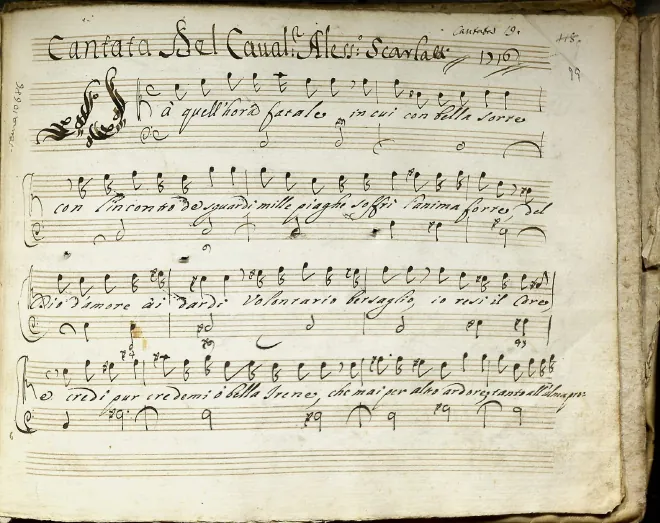 Cantata 19.
Cantata Del Caual.r Aless.o Scarlatti 1716
19
à quell'hora fatale in cui con bella sorte
con l'incontro de sguardi mille piaghe soffrì l'anima forte, del
Dio d'amore ài dardi Volontario bersaglio, io resi il Core,
e credi pur credemi ò bella Irene, che mai per altro ardore, tanto all'alma